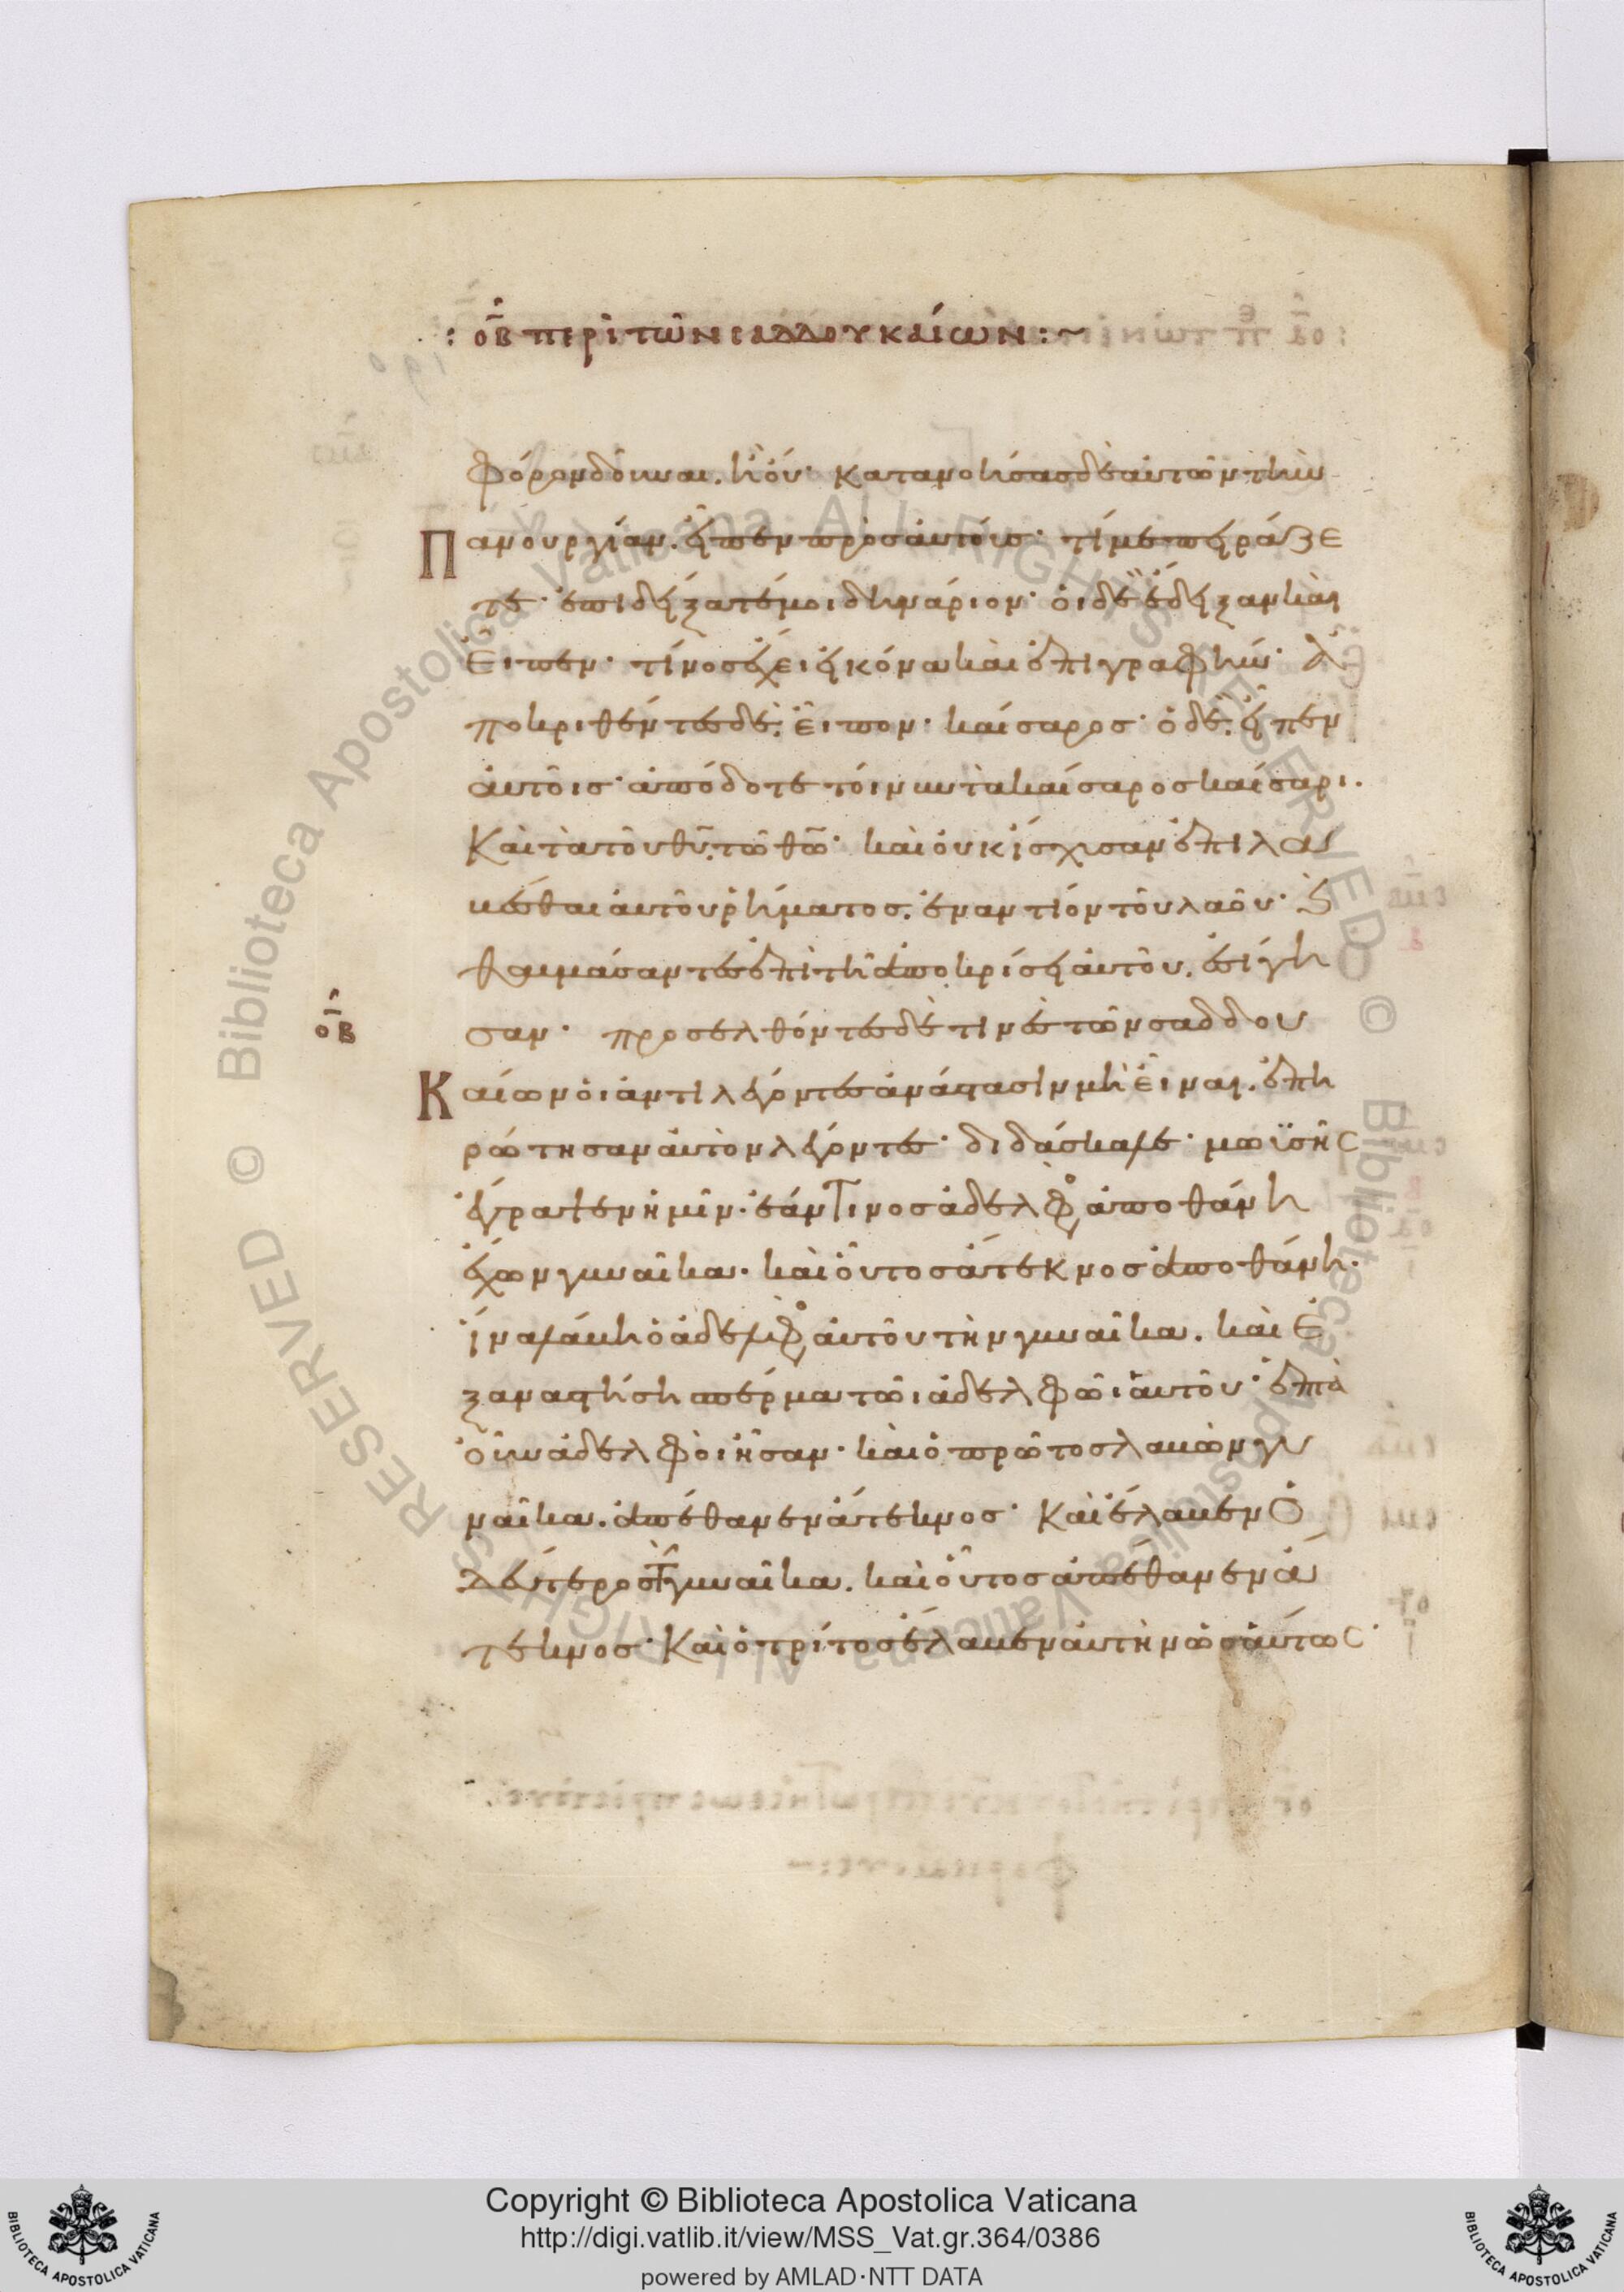 : οβ περὶ τῶν σαδδουκαίων : ~
φόρον δοῦναι. ἢ οὔ· κατανοήσας δὲ αὐτῶν τὴν
πανουργίαν. εἶπεν πρὸς αὐτούς· τί με πειράζε
τε· ἐπιδείξατέ μοι δηνάριον· οἱ δὲ ἔδειξαν καὶ
εἶπεν· τίνος ἔχει εἰκόνα καὶ ἐπιγραφήν· ἀ
ποκριθέντες δὲ. εἶπον· καίσαρος· ὁ δὲ. εἶπεν
αὐτοῖς· ἀπόδοτε τοίνυν τὰ καίσαρος καίσαρι.
Καὶ τὰ τοῦ θυ. τῶ θω· καὶ οὐκ ἴσχυσαν ἐπιλα
βέσθαι αὐτοῦ ῥήματος. ἐναντίον τοῦ λαοῦ· ϗ
θαυμάσαντες ἐπὶ τῆ ἀποκρίσει αὐτοῦ. ἐσίγη
οβ
σαν· προσελθόντες δέ τινες τῶν σαδδου
Καίων οἱ ἀντιλέγοντες ἀνάστασιν μὴ εἶναι. ἐπη
ρώτησαν αὐτὸν λέγοντες· διδάσκαλε· μωϋσῆς
ἔγραψεν ἡμῖν· ἐάν τινος ἀδελφο ἀποθάνη
ἔχων γυναῖκα. καὶ οὗτος ἄτεκνος ἀποθάνη.
ἵνα λάβη ὁ ἀδελφο αὐτοῦ τὴν γυναῖκα. καὶ ἐ
ξαναστήση σπέρμα τῶι ἀδελφῶι αὐτοῦ· ἑπτὰ
οὖν ἀδελφοὶ ἦσαν· καὶ ὁ πρῶτος λαβὼν γυ
ναῖκα. ἀπέθανεν ἄτεκνος· Καὶ ἔλαβεν ὁ
δεύτερος τὴν γυναῖκα. καὶ οὗτος ἀπέθανεν ἄ
τεκνος· Καὶ ὁ τρίτος ἔλαβεν αὐτὴν ὡσαύτως·
Copyright © Biblioteca Apostolica Vaticana
http://digi.vatlib.it/view/MSS_Vat.gr.364/0386
powered by AMLAD·NTT DATA